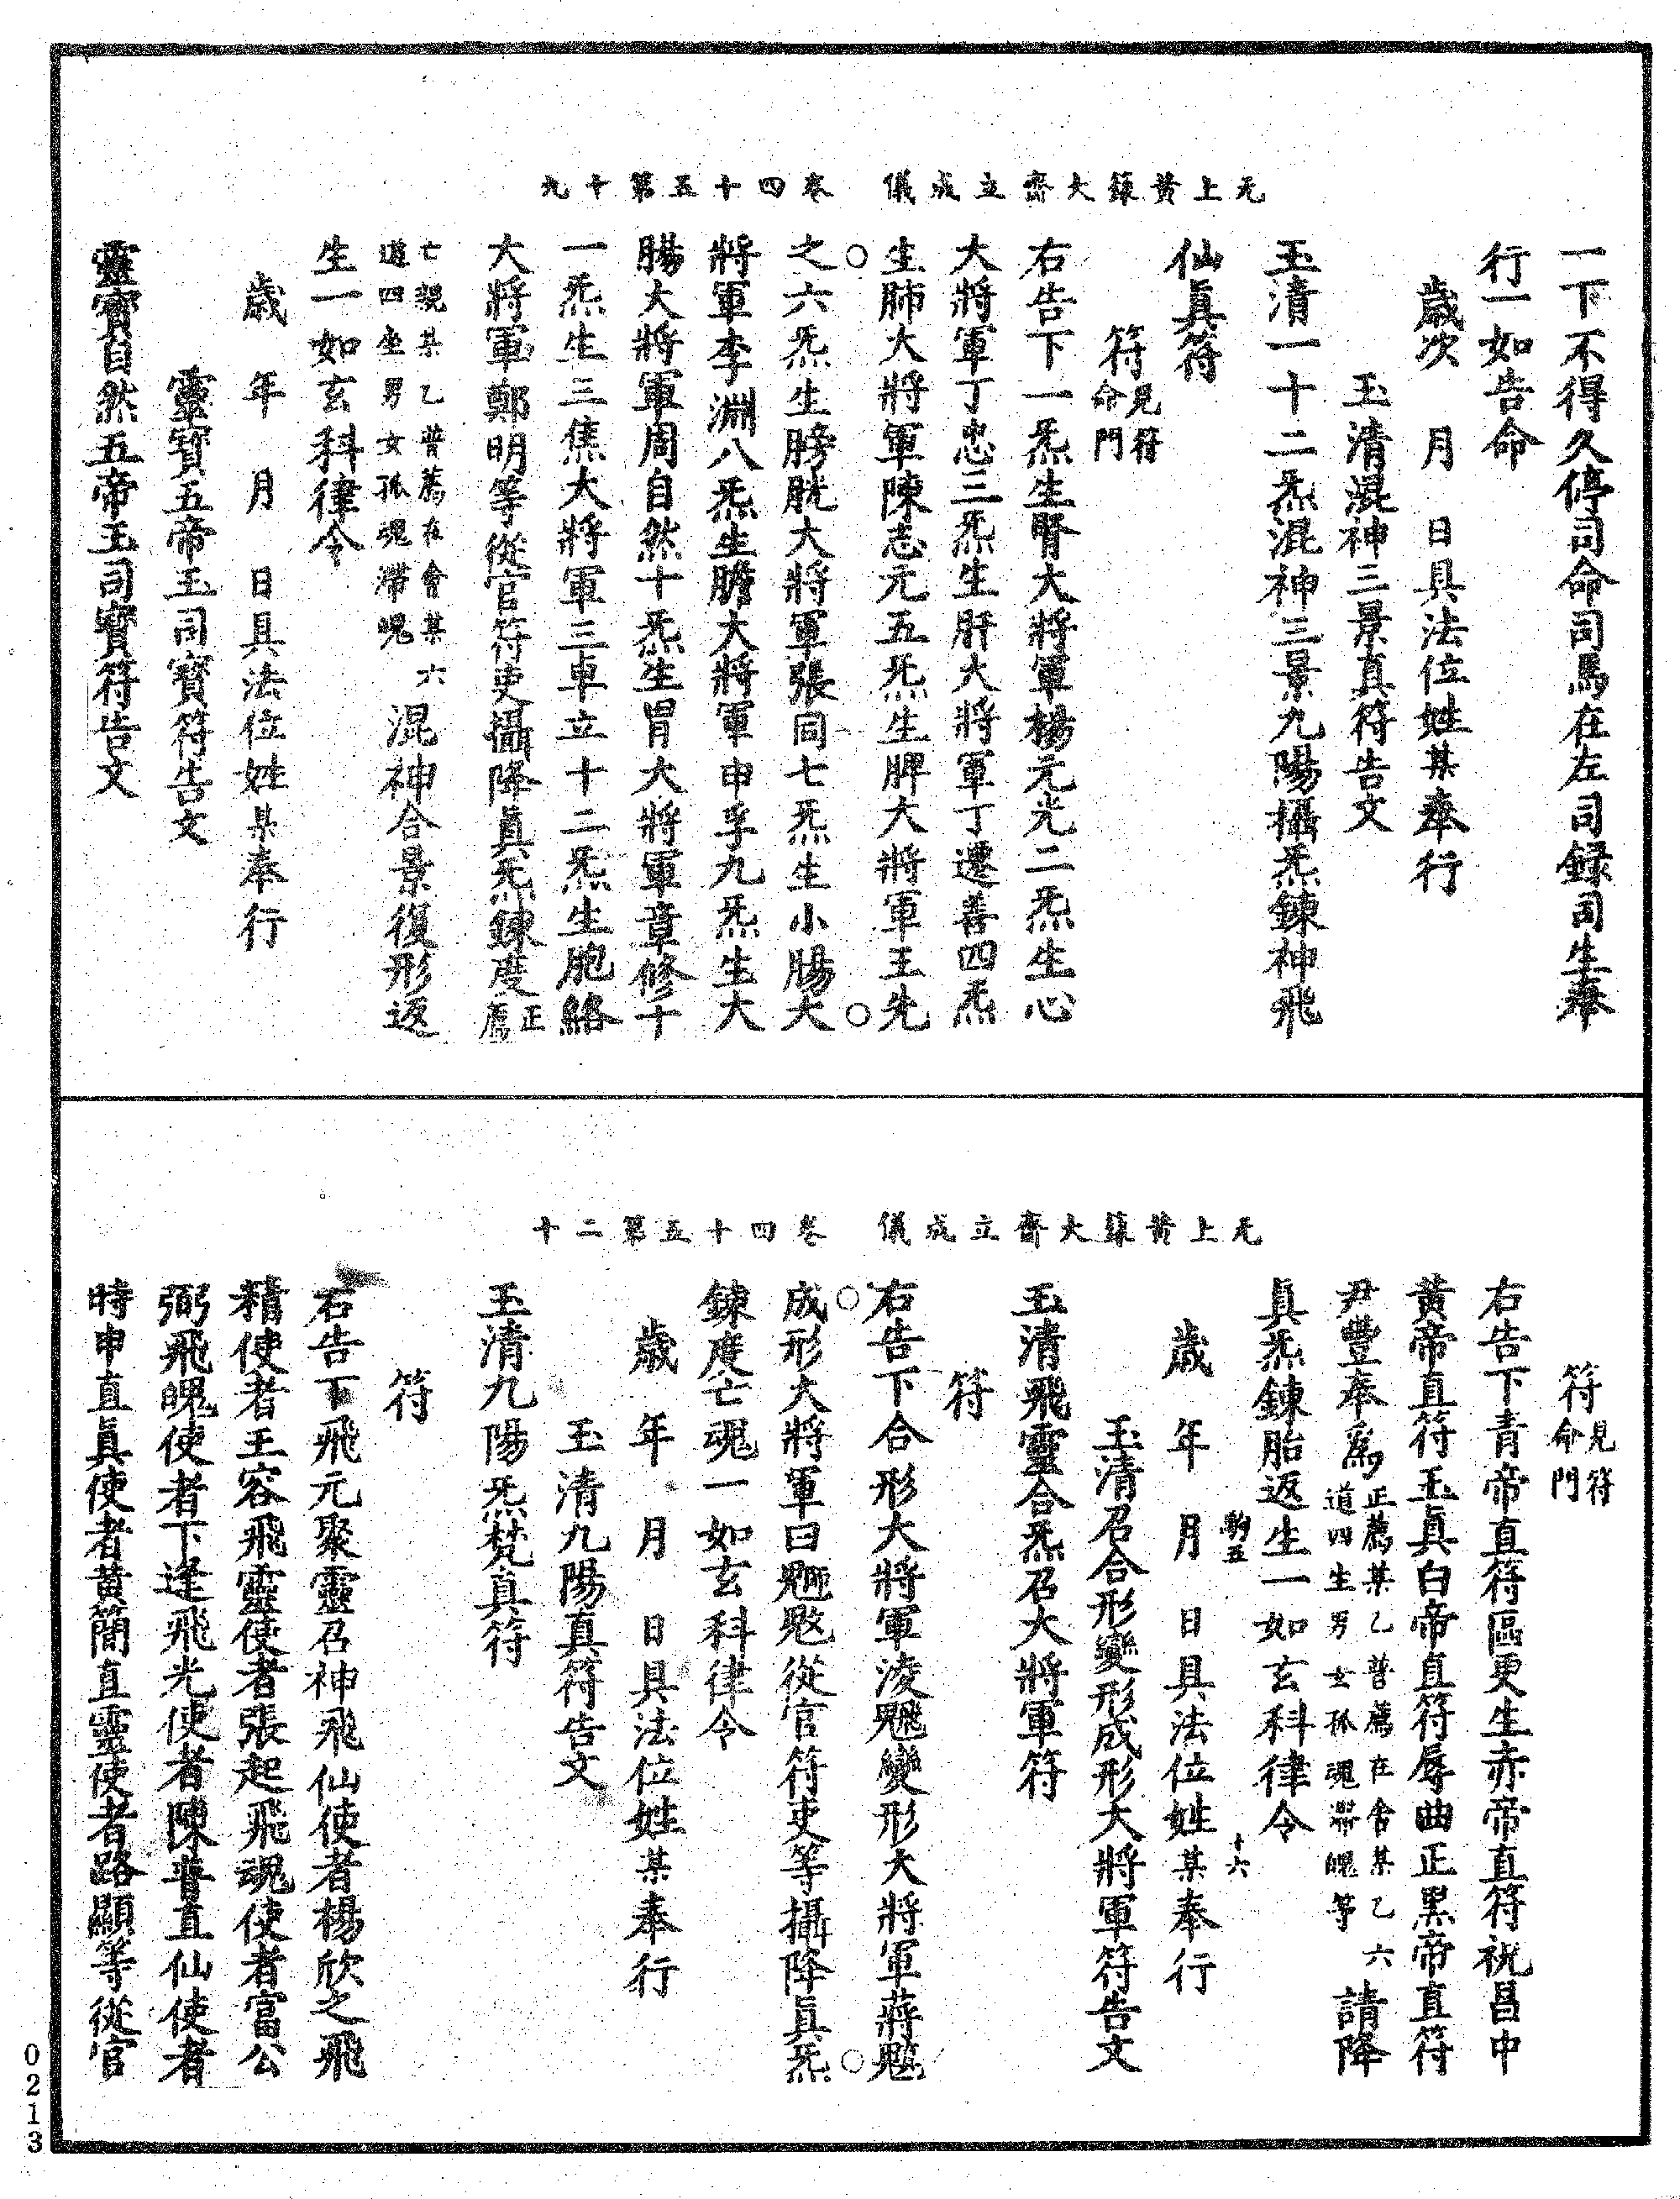 无上黃籙大齋立成儀 卷四十五第十九
一下不得久停司命司馬在左司録司生奉
行一如告命
歲次 月 日具法位姓某奉行
玉清混神三景真符告文
玉清一十二炁混神三景九陽攝炁鍊神飛
仙眞符
符見符命門
右告下一炁生腎大將軍楊元光二炁生心
大將軍丁忠三炁生肝大將軍丁遷善四炁
生肺大將軍陳志元五炁生脾大將軍王先
之六炁生膀胱大將軍張同七炁生小腸大
將軍李淵八炁生膽大將軍申孚九炁生大
腸大將軍周自然十炁生胃大將軍章修十
一炁生三焦大將軍三車立十二炁生胞絡
大將軍鄭明等從官符吏攝降眞炁鍊度正薦
亡親某乙普薦在會某六
道四坐男女孤魂滯魄
混神合景復形返
生一如玄科律令
歲 年 月 日具法位姓某奉行
靈寶五帝玉司寳符告文
靈寳自然五帝玉司寳符告文
无上黃籙大齋立成儀 卷四十五第二十
符見符命門
右告下青帝直符區更生赤帝直符祝昌中
黃帝直符玉眞白帝直符辱曲正黑帝直符
尹豐奉爲正薦某乙普薦在會某乙六
道四生男女孤魂滯魄等
請降
眞炁鍊胎返生一如玄科律令
駒五 十六
歲 年 月 日具法位姓某奉行
玉清召合形變形成形大將軍符告文
玉清飛靈合炁召大將軍符
符
右告下合形大將軍淩魒變形大將軍蔣
成形大將軍曰 從官符吏等攝降眞炁
鍊度亡魂一如玄科律令
歲 年 月 日具法位姓某奉行
玉清九陽真符告文
玉清九陽炁梵真符
符
右告下飛元聚靈召神飛仙使者楊欣之飛
精使者王容飛靈使者張起飛魂使者富公
弼飛魄使者下逢飛光使者陳普直仙使者
時申直眞使者黃簡直靈使者路顯等從官
0213